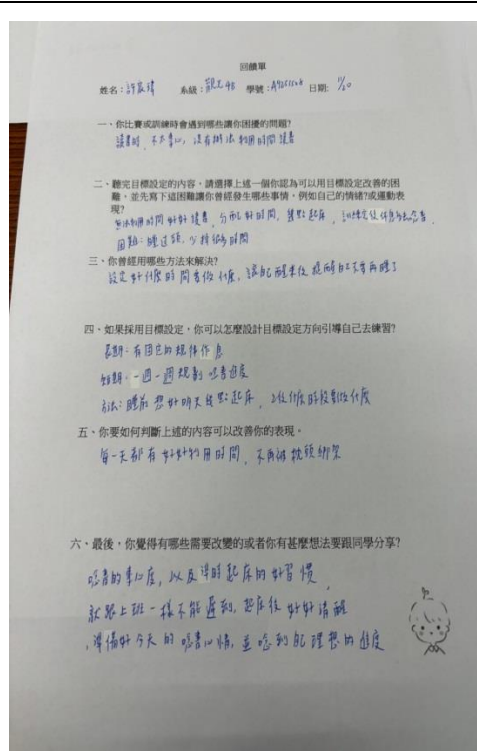 回饋單
姓名：許宸瑋 系級：觀工4B 學號： 日期：
一、你比賽或訓練時會遇到哪些讓你困擾的問題?
讀書時，不太專心，沒有辦法利用時間讀書
二、聽完目標設定的內容，請選擇上述一個你認為可以用目標設定改善的困
難，並先寫下這困難讓你曾經發生哪些事情，例如自己的情緒?或運動表
現?
無法利用時間好好讀書，分配好時間，幾點起床，訓練完後休息去唸書
困難：睡過頭，少掉很多時間
三、你曾經用哪些方法來解決?
設定好什麼時間會做什麼，讓自己醒來後提醒自己不要再睡了
四、如果採用目標設定，你可以怎麼設計目標設定方向引導自己去練習?
長期：有固定的規律作息
短期：一週一週規劃唸書進度
方法：睡前想好明天幾點起床，之後什麼時段要做什麼
五、你要如何判斷上述的內容可以改善你的表現。
每一天都有好好利用時間，不再被枕頭綁架
六、最後，你覺得有哪些需要改變的或者你有甚麼想法要跟同學分享?
唸書的專心度，以及準時起床的好習慣，
就跟上班一樣不能遲到，起床後好好清醒
，準備好今天的唸書心情，並唸到自己理想的進度